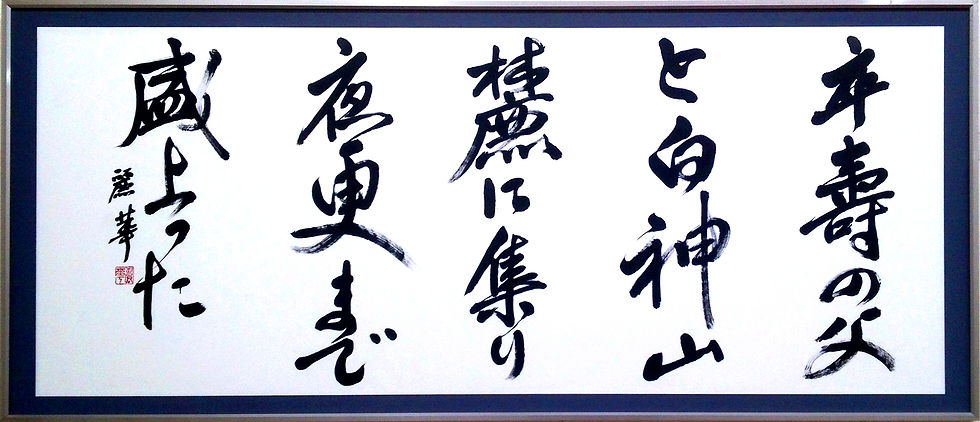 卒壽の父
と白神山
麓に集り
夜更まで
盛上った
華